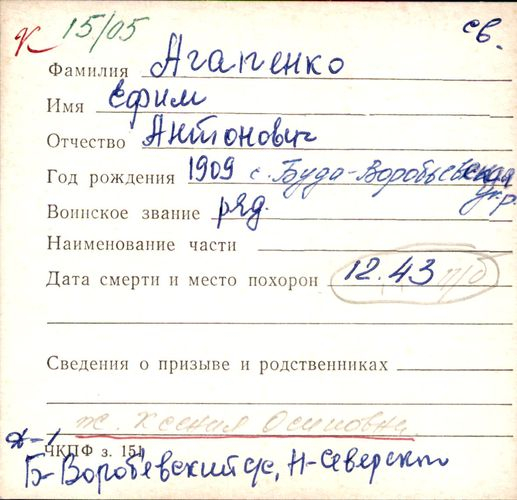 К 15/05 св.
Фамилия Агапенко
Имя Ефим
Отчество Антонович
Год рождения 1909 с. Буда-Воробьевская
Воинское звание ряд.
Наименование части
Дата смерти и место похорон 12.43 п/б
Сведения о призыве и родственниках
ж. Ксения Осиповна
ЧКПФ з. 151
Б-Воробевский с/с, Н-Северск